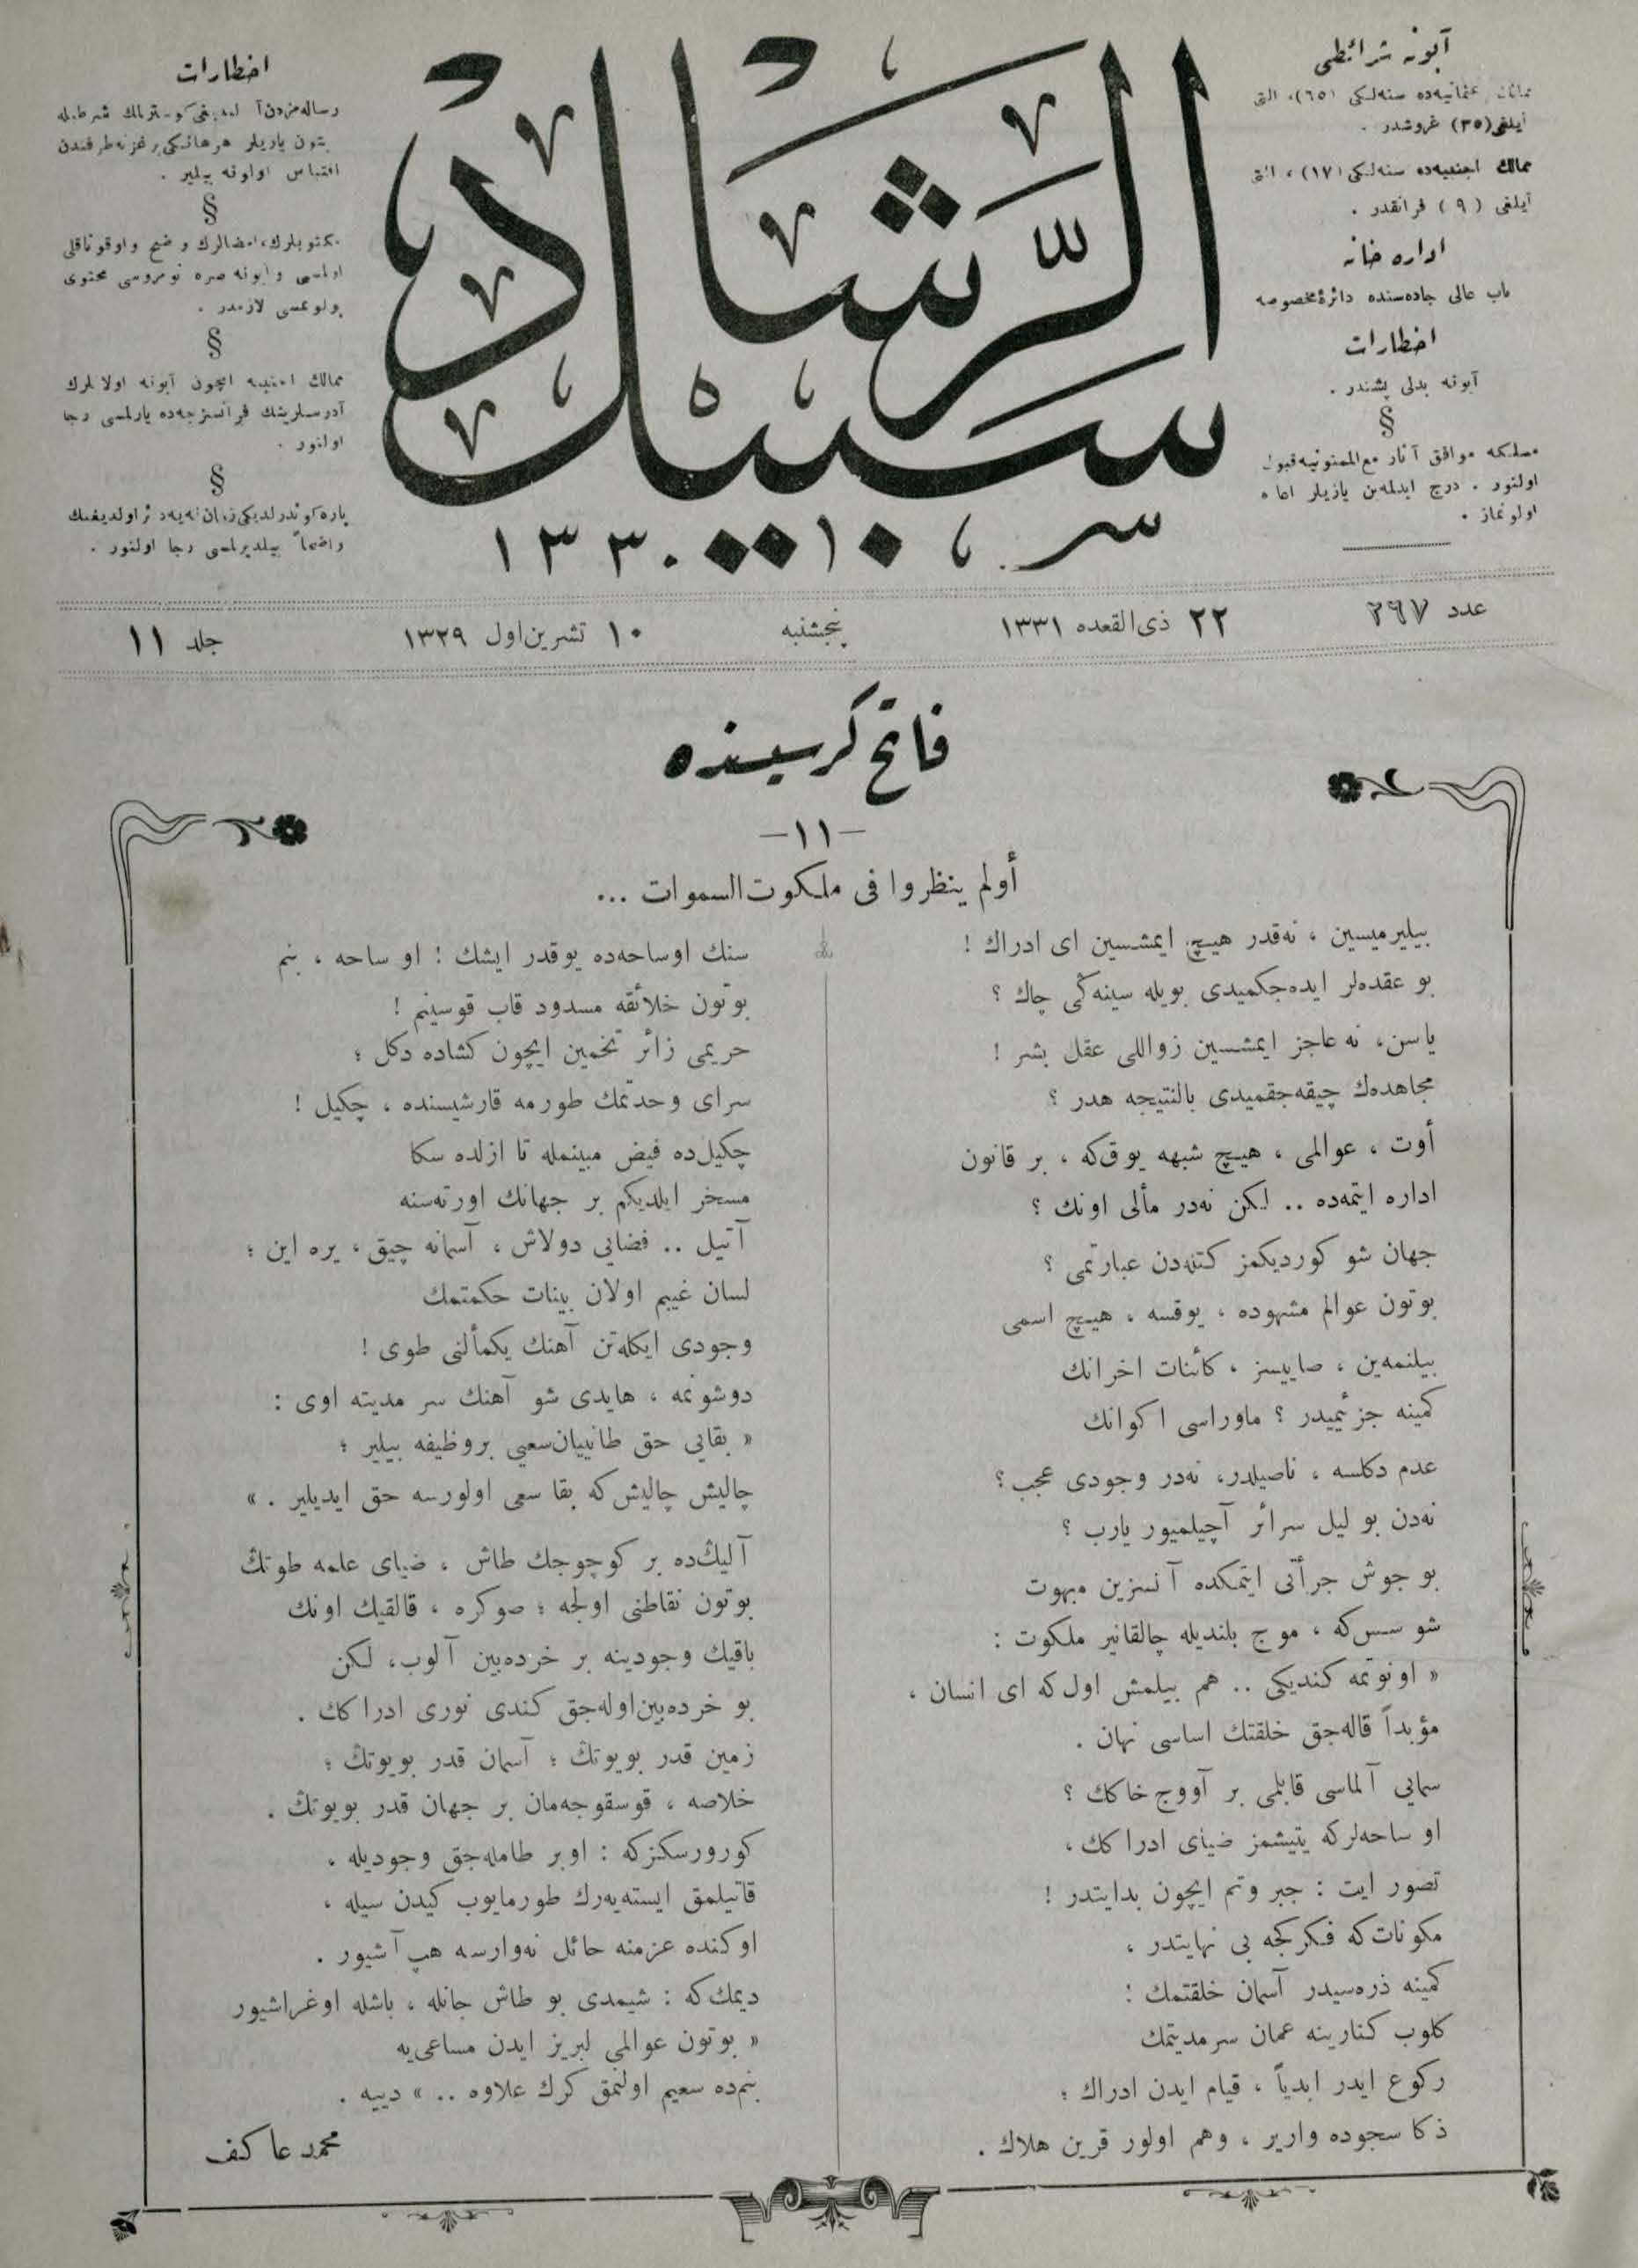 آبونه شرائطی
ممالك عثمانیه‌ده سنه‌لكی (٦٥)، التی
آیلغی (٣٥) غروشدر .
ممالك اجنبیه‌ده سنه‌لكی (١٧) ، التی
آیلغی ( ٩ ) فرانقدر .
اداره خانه
باب عالی جاده‌سنده دائرهٔ مخصوصه
اخطارات
آبونه بدلی پشیندر .
§
مسلكه موافق آثار مع الممنونیه قبول
اولنور . درج ایدلمه‌ین یازیلر اعاده
اولونماز .
سبیل الرشاد
١٣٣٠
اخطارات
رساله‌مزدن آلندیغی كوسترلمك شرطیله
بتون یازیلر هر هانكی بر غزته طرفندن
اقتباس اولونه بیلیر .
§
مكتوبلرك، امضالرك واضح و اوقوناقلی
اولمسی و آبونه صره نومروسی محتوی
بولونمسی لازمدر .
§
ممالك اجنبیه ایچون آبونه اولانلرك
آدرسلرینك فرانسزجه‌ده یازلمسی رجا
اولنور .
§
پاره كوندرلدیكی زمان نه‌یه دائر اولدیغنك
واضحاً بیلدیرلمسی رجا اولنور .
عدد ٢٦٧
٢٢ ذی القعده ١٣٣١
پنجشنبه
١٠ تشرین اول ١٣٢٩
جلد ١١
فاتح كرسیسنده
—١١—
أولم ینظروا فی ملكوت السموات ...
بیلیرمیسین ، نه‌قدر هیچ ایمشسین ای ادراك !
بو عقده‌لر ایده‌جكمیدی بویله سینه‌كی چاك ؟
یا سن، نه عاجز ایمشسین زواللی عقل بشر !
مجاهده‌ك چیقه‌جقمیدی بالنتیجه هدر ؟
أوت ، عوالمی ، هیچ شبهه یوق‌كه ، بر قانون
اداره ایتمه‌ده .. لكن نه‌در مألی اونك ؟
جهان شو كوردیكمز كتله‌دن عبارتمی ؟
بوتون عوالم مشهوده ، یوقسه ، هیچ اسمی
بیلنمه‌ین ، صاییسز ، كائنات اخرانك
كمینه جزئیمیدر ؟ ماوراسی اكوانك
عدم دكلسه ، ناصیلدر، نه‌در وجودی عجب ؟
نه‌دن بو لیل سرائر آچیلمیور یارب ؟
بو جوش جرأتی ایتمكده آنسزین مبهوت
شو سس‌كه ، موج بلندیله چالقانیر ملكوت :
« اونوتمه كندیكی .. هم بیلمش اول‌كه ای انسان ،
مؤبداً قاله‌جق خلقتك اساسی نهان .
سمایی آلماسی قابلمی بر آووج خاكك ؟
او ساحه‌لركه یتیشمز ضیای ادراكك ،
تصور ایت : جبروتم ایچون بدایتدر !
مكونات‌كه فكركجه بی نهایتدر ،
كمینه ذره‌سیدر آسمان خلقتمك ؛
كلوب كنارینه عمان سرمدیتمك
ركوع ایدر ابدیاً ، قیام ایدن ادراك ؛
ذكا سجوده واریر ، وهم اولور قرین هلاك .
سنك او ساحه‌ده یوقدر ایشك ! او ساحه ، بنم
بوتون خلائقه مسدود قاب قوسینم !
حریمی زائر تخمین ایچون كشاده دكل ؛
سرای وحدتمك طورمه قارشیسنده ، چكیل !
چكیل‌ده فیض مبینمله تا ازلده سكا
مسخر ایلدیكم بر جهانك اورته‌سنه
آتیل .. فضایی دولاش ، آسمانه چیق ، یره این ؛
لسان غیبم اولان بینات حكمتمك
وجودی ایكله‌تن آهنك یكمألنی طوی !
دوشونمه ، هایدی شو آهنك سرمدیته اوی :
« بقایی حق طانییان سعیی بر وظیفه بیلیر ؛
چالیش چالیش‌كه بقا سعی اولورسه حق ایدیلیر . »
آلیڭ‌ده بر كوچوجك طاش ، ضیای علمه طوتڭ
بوتون نقاطنی اولچه ؛ صوكره ، قالقیڭ اونك
باقیڭ وجودینه بر خرده‌بین آلوب، لكن
بو خرده‌بین اوله‌جق كندی نوری ادراكك .
زمین قدر بویوتڭ ؛ آسمان قدر بویوتڭ ؛
خلاصه ، قوسقوجه‌مان بر جهان قدر بویوتڭ .
كورورسكزكه : او بر طامله‌جق وجودیله ،
قاتیلمق ایسته‌یه‌رك طورمایوب كیدن سیله ،
اوكنده عزمنه حائل نه‌وارسه هپ آشیور .
دیمك‌كه : شیمدی بو طاش جانله ، باشله اوغراشیور
« بوتون عوالمی لبریز ایدن مساعی‌یه
بنم‌ده سعیم اولنمق كرك علاوه .. » دییه .
محمد عاكف